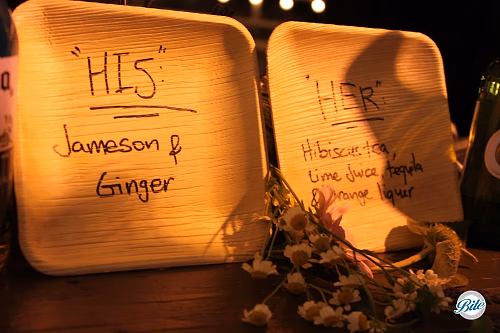 "HIS":
Jameson &
Ginger
"HER":
Hibiscus tea,
Lime Juice, tequila
& orange liquer
Bite